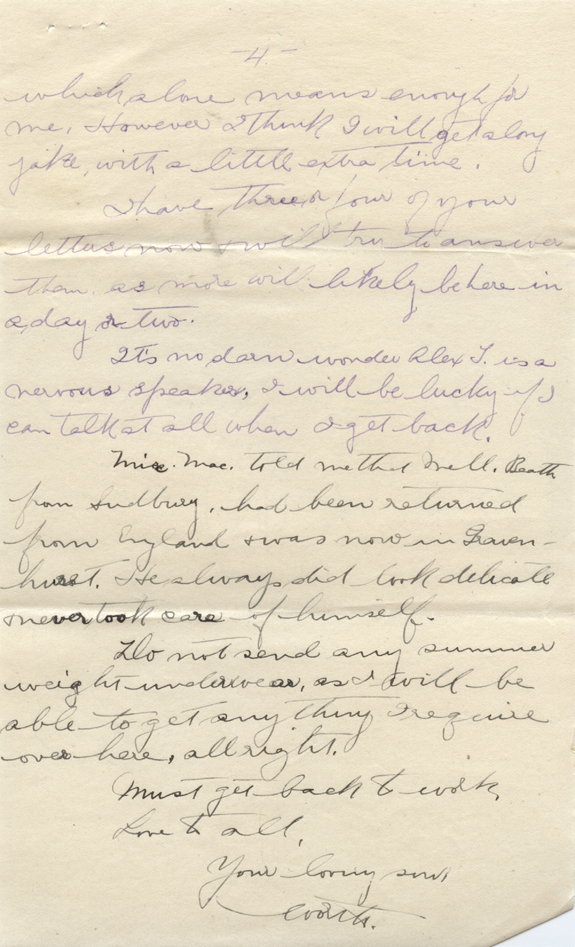 -4-
which alone means enough for
me. However I think I will get along
jake, with a little extra time.
I have three or four of your
letters now & will try to answer
them, as more will likely be here in
a day or two.
It's no darn wonder Alex T. is a
nervous speaker, I will be lucky if I
can talk at all when I get back.
Mrs. Mac. told me that Mell. Beath
from Sudbury, had been returned
from England & was now in Graven-
hurst. He always did look delicate
& never took care of himself.
Do not send any summer
weight underwear, as I will be
able to get anything I require
over here, all right.
Must get back to work,
Love to all,
Your loving son,